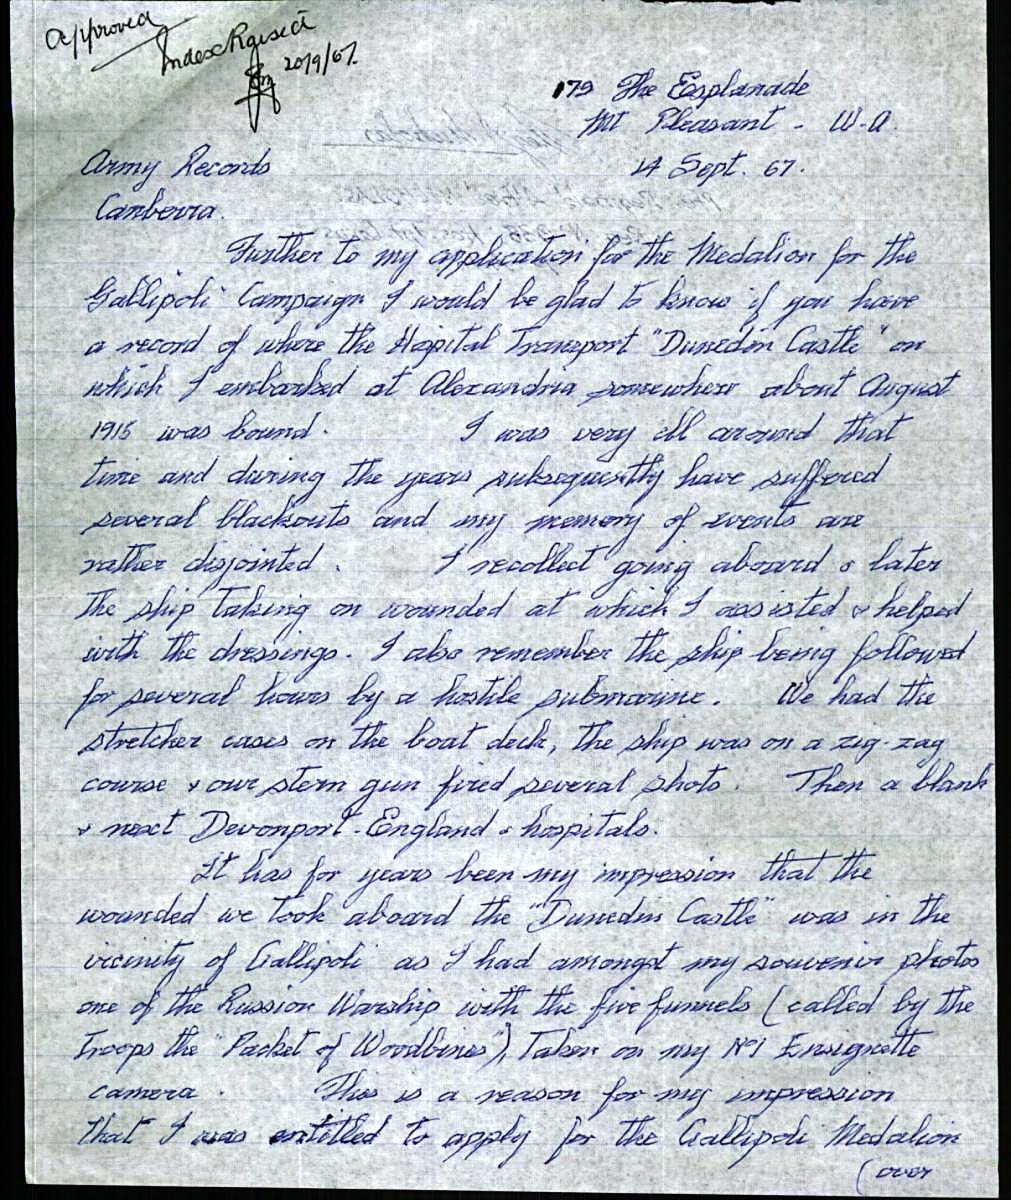 Approved
Index Raised
20/9/67.
179 The Esplanade
Mt Pleasant - W.A.
Army Records
14 Sept. 67.
Canberra.
Further to my application for the Medalion for the
Gallipoli Campaign I would be glad to know if you have
a record of where the Hospital Transport "Dunedin Castle" on
which I embarked at Alexandria somewhere about August
1915 was bound. I was very ill around that
time and during the years subsequently have suffered
several blackouts and my memory of events are
rather disjointed. I recollect going aboard & later
the ship taking on wounded at which I assisted & helped
with the dressings. I also remember the ship being followed
for several hours by a hostile submarine. We had the
stretcher cases on the boat deck, the ship was on a zig-zag
course & our stern gun fired several shots. Then a blank
& next Devonport - England & hospitals.
It has for years been my impression that the
wounded we took aboard the "Dunedin Castle" was in the
vicinity of Gallipoli as I had amongst my souvenir photos
one of the Russion Warship with the five funnels (called by the
Troops the "Packet of Woodbines"), taken on my No1 Ensignette
camera. This is a reason for my impression
that I was entitled to apply for the Gallipoli Medalion
(over